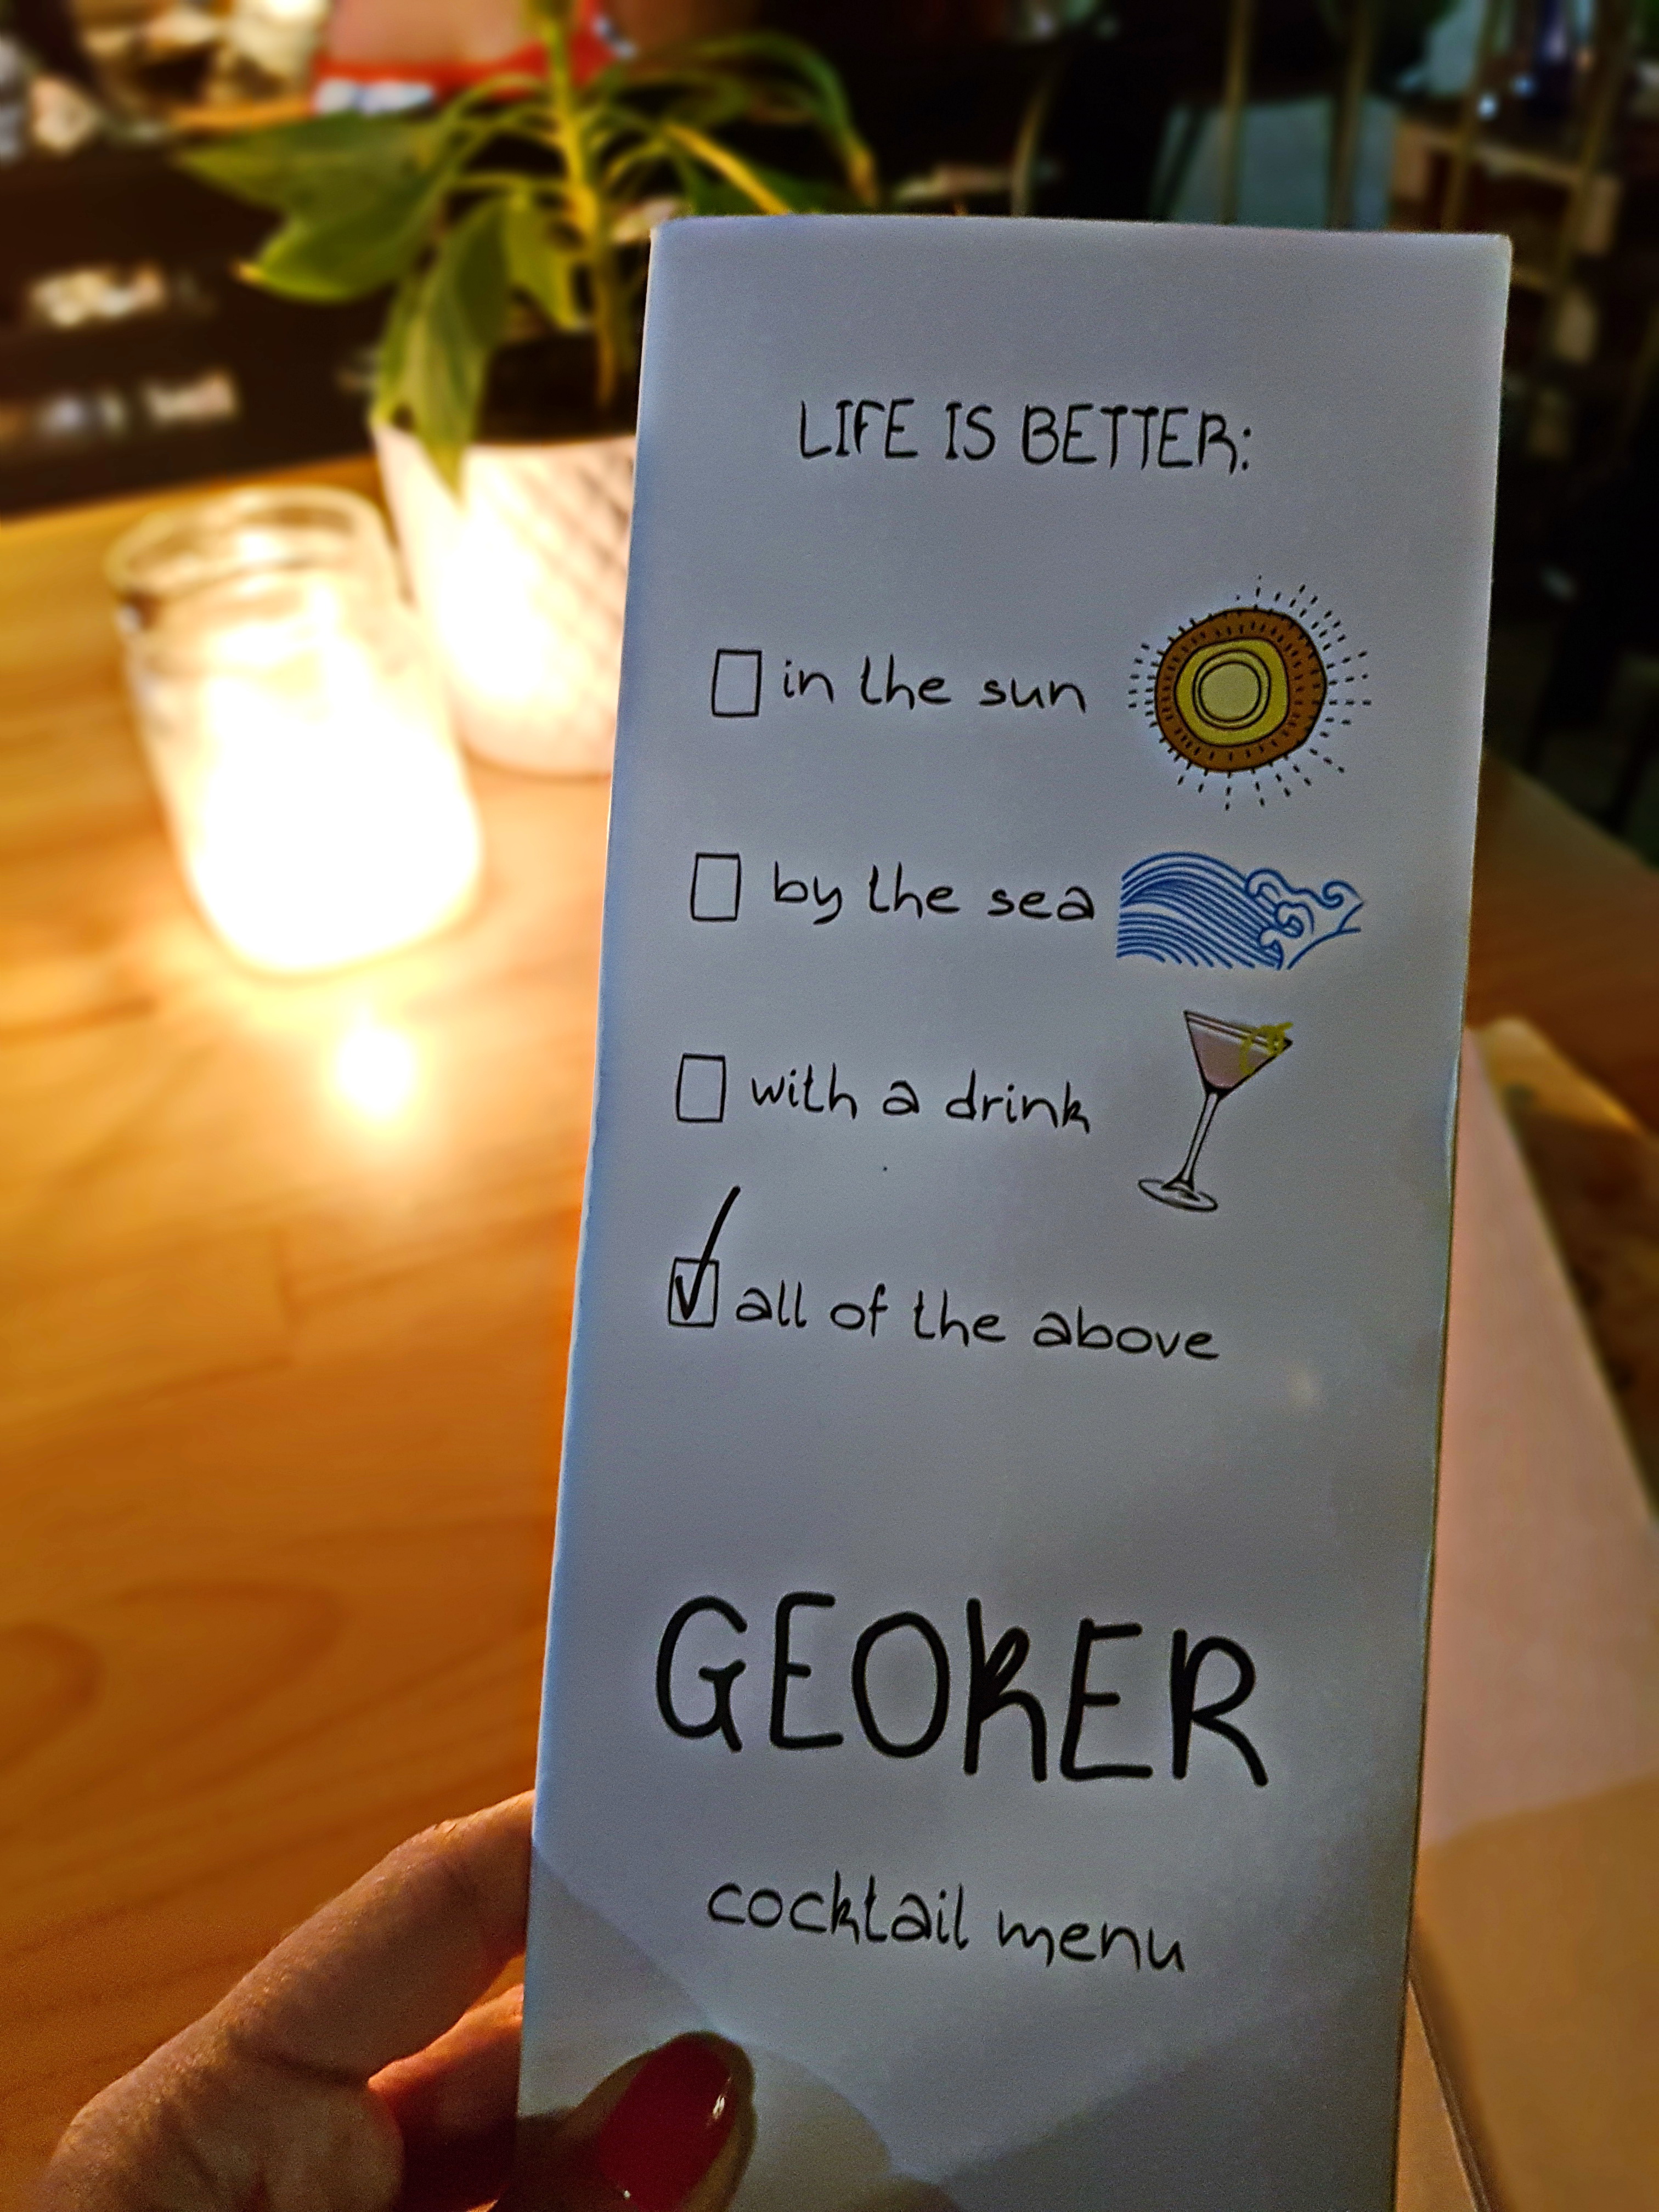 LIFE IS BETTER:
in the sun
by the sea
with a drink
all of the above
GEOKER
cocktail menu